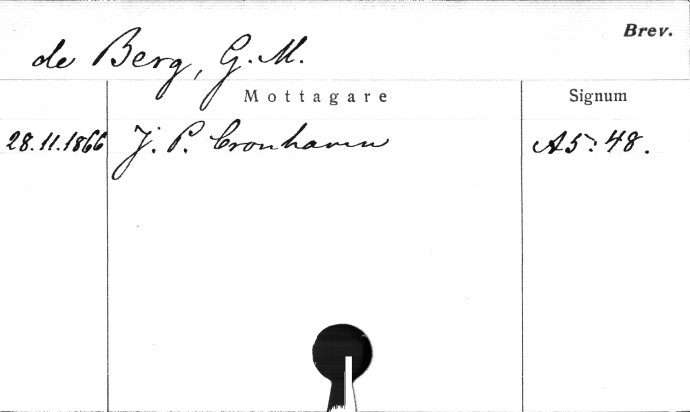 Brev.
de Berg, G. M.
Mottagare Signum
28.11.1866 J. P. Cronhamn A5:48.